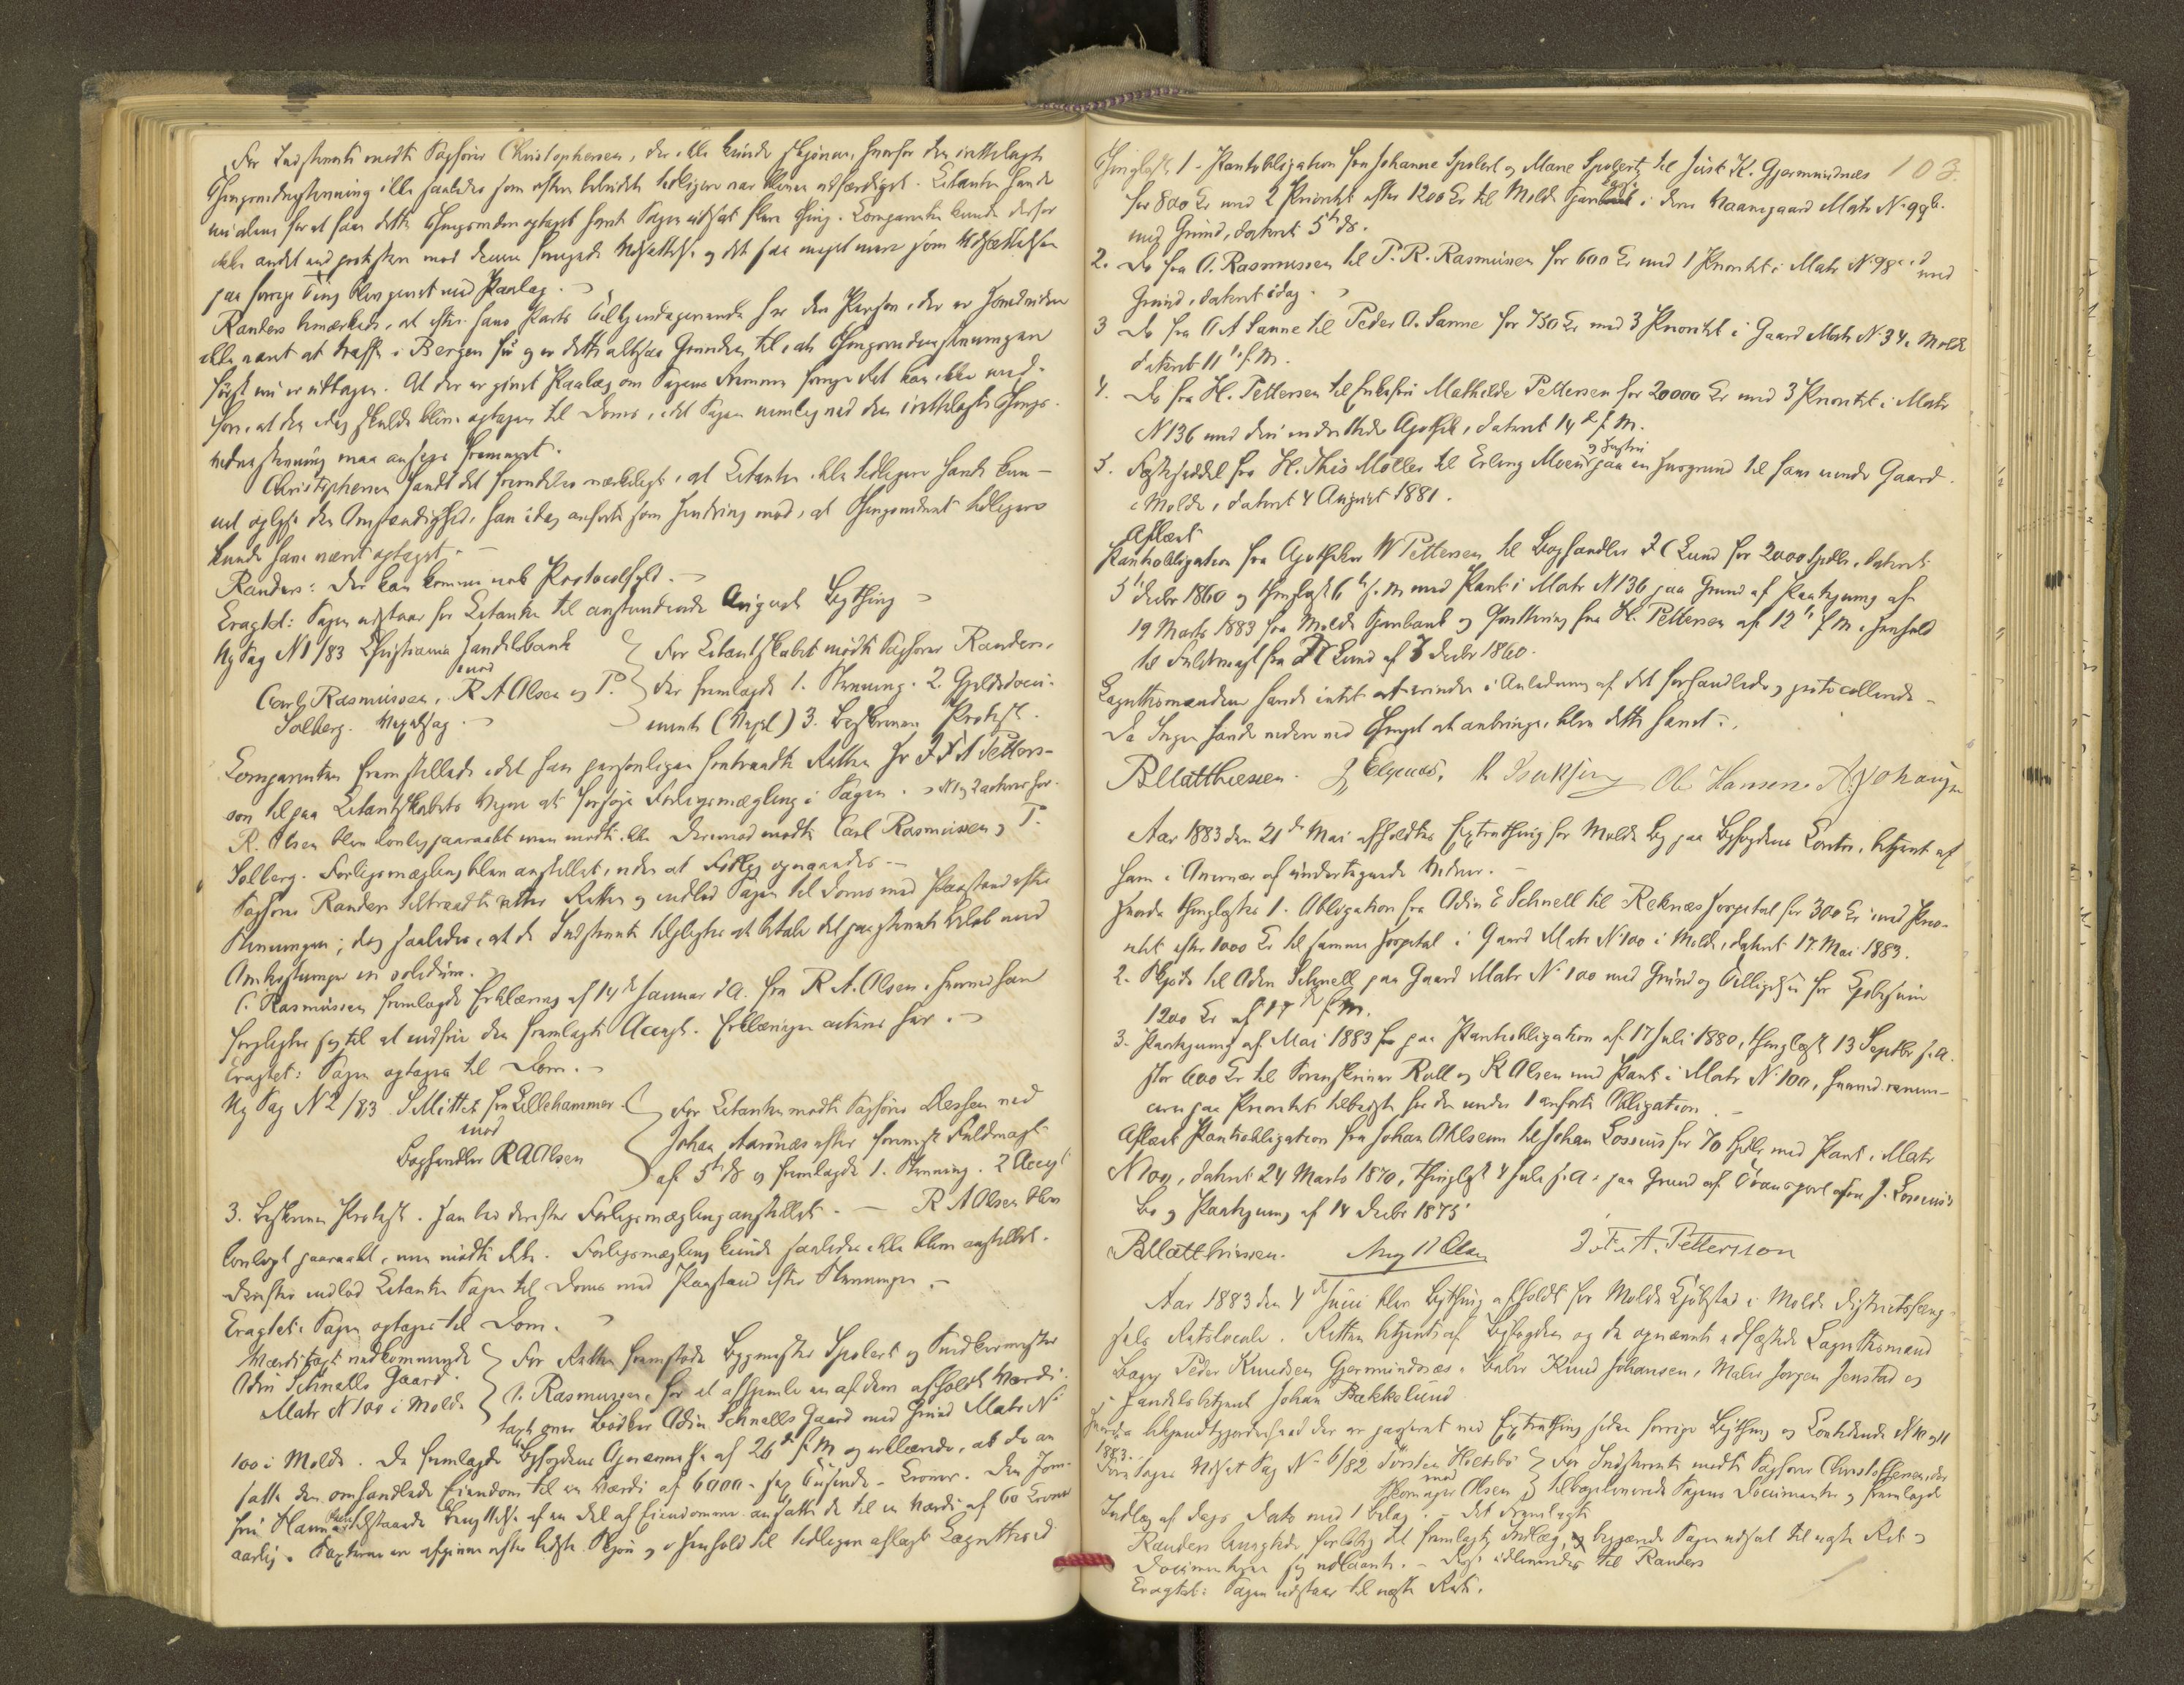 For Indstevnte mødte Sagfører Christophersen, der ikke kunde skjønne, hvorfor den irettelagte
Thingsvidnestevning ikke saaledes som efter tidligere var bleven udfærdiget. Citanten havde
nu alene for at faae dette Thingsvidne optaget havt Sagen udsat flere Thing. Comparenten kunde derfor
ikke andet end protestere mod denne Udsættelse og det saa meget mere som Udsættelsen
paa forrige Ting blev givet med Paalæg.
Randers bemærkede, at efter hans Parts Tilkjendegivende har den Person, der er Hovedvidne
ikke været at træffe i Bergen før og er dette altsaa Grunden til, at Thingsvidnestevningen
først nu er udtagen. At der er givet Paalæg om Sagens Fremme forrige Ret kan ikke med-
føre, at den idag skulde blive optagen til Doms, idet Sagen nemlig ved den irettelagte Things-
vidnestevning maa ansees fremmet.
Christophersen fandt det fremdeles mærkeligt, at Citanten ikke tidligere havde kun-
net oplyse den Omstændighed, han idag anførte som Hindring mod, at Thingsvidnet tidligere
kunde have været optaget.
Randers: Der kan komme nok Protocoltilf.
Eragtet: Sagen udstaar for Citanten til anstundende August Bything
Ny Sag N 1/83 Christiania Handelsbank
mod
Carl Rasmussen, R A Olsen og T.
Solberg. Vexelsag.
For Citantskabet mødte Sagfører Randers,
der fremlagde 1. Stevning. 2. Gjeldsdocu-
ment (Vexel) 3. Beskreven Protest.
Comparenten fremstillede idet han personligen fratraadte Retten Hr J F A Petters-
son til paa Citantskabets Vegne at forsøge Forligsmægling i Sagen.
R. Olsen blev lovlig paaraabt men mødte ikke. Derimod mødte Carl Rasmussen og T.
Solberg. Forligsmægling blev anstillet, uden at Forlig opnaaedes.
Sagfører Randers tiltraadte atter Retten og indlod Sagen til Doms med Paastand efter
Stevningen; dog saaledes, at de Indstevnte tilpligtes at betale det paastevnte Beløb med
Omkostninger in solidum.
C. Rasmussen fremlagde Erklæring af 14de Januar d A. fra R A. Olsen, hvorved han
forpligter sig til at indfrie den fremlagte Accept. Erklæringen acteres her.
Eragtet: Sagen optages til Dom.
Ny Sag N 2/83 S Mittet fra Lillehammer
mod
Boghandler R A Olsen
For Citanten mødte Sagfører Dessen ved
Johan Aarønæs efter Fuldmagt
af 5te ds og fremlagde 1. Stevning. 2 Accept
3. Beskreven Protest. Han bad derefter Forligsmægling anstillet. — R A Olsen blev
lovligt paaraabt, men mødte ikke. Forligsmægling kunde saaledes ikke blive anstillet.
Derefter indlod Citanten Sagen til Doms med Paastand efter Stevningen.
Eragtet: Sagen optages til Dom.
Værditaxt vedkommende
Odin Schnells Gaard
Matr N 100 i Molde
For Retten fremstod Bygmester Spolert og Snedkermester
O. Rasmussen for at afhjemle en af dem afholdt Værdi-
taxt over Bødker Odin Schnells Gaard med Grund Matr No
100 i Molde. De fremlagde Byfogdens Opnævnelse af 26de f M og erklærede, at de an
satte den omhandlede Eiendom til en Værdi af 6000 - sex Tusinde - Kroner. Den Jom-
fru Hanna tilstaaede Benyttelse af en Del af Eiendommen ansatte de til en Værdi af 60 Kroner
aarlig. Taxterne ere afgivne efter bedste Skjøn og i Henhold til tidligere aflagt Lagrettesed
103.
Thinglæst 1. Pantobligation fra Johanne Spolert og Marie Spolert til Just K. Gjermundnes
for 800 Kr med 2 Prioritet efter 1200 Kr til Molde Sparebank i deres Vaaningsgaard Matr No 99b.
med Grund, dateret 5te ds.
2. Do fra O. Rasmussen til P. R. Rasmussen for 600 Kr med 1 Prioritet i Matr No 98 med
Grund, dateret idag.
3 Do fra O A Sanne til Peder O. Sanne for 750 Kr med 3 Prioritet i Gaard Matr No 34 i Molde
dateret 11te f. M.
4. Do fra H. Pettersen til Enkefru Mathilde Pettersen for 20000 Kr med 3 Prioritet i Matr
N 136 med den indrettede Apothek, dateret 14de f. M.
5. Festeseddel fra H. Thiis Møller til Erling Moens og Hustru paa en Husgrund til hans nuværende Gaard
i Molde, dateret 4 August 1881.
Aflæst
Pantobligation fra Apotheker W Pettersen til Boghandler J C Lund for 2000 Spdlr, dateret
5te Decbr 1860 og thinglæst 6te s. M med Pant i Matr N 136 paa Grund af Paategning af
19 Marts 1883 fra Molde Sparebank og Qvittering fra H. Pettersen af 12te f M i Henhold
til Fuldmagt fra J C Lund af 7 Decbr 1860.
Lagrettesmændene havde intet at erindre i Anledning af det forhandlede og protocollerede
Da Ingen havde videre ved Thinget at anbringe, blev dette hævet.
B Matthiessen. J Elgenes, R Isaksen Ole Hansen. A. Johansen
Aar 1883 den 21de Mai afholdtes Extrathing for Molde By paa Byfogdens Contor, betjent af
ham i Overvær af undertegnede Vidner.
Hvorda thinglæstes 1. Obligation fra Odin E Schnell til Reknes Hospital for 300 Kr med Prio-
ritet efter 1000 Kr til samme Hospital i Gaard Matr N 100 i Molde, dateret 17 Mai 1883.
2. Skjøde til Odin Schnell paa Gaard Matr No 100 med Grund og Tilliggelse for Kjøbesum
1200 Kr af 17de f. M.
3. Paategning af Mai 1883 paa Pantobligation af 17 Juli 1880, thinglæst 13 Septbr s. A.
stor 600 Kr til Sorenskriver Roll og K Olsen med Pant i Matr No 100, hvorved renun-
ceres paa Prioritet tilbage for den under 1 anførte Obligation.
Aflæst Pantobligation fra Johan Ohlsenn til Johan Lossius for 70 Spdlr med Pant i Matr
N 100, dateret 24 Marts 1870, thinglæst 4 Juli s. A. paa Grund af Transport fra J. Lossius's
Bo og Paategning af 14 Decbr 1875
B Matthiessen. Aug H Olsen J. F. A. Pettersson
Aar 1883 den 4de Juni blev Bything afholdt for Molde Kjøbstad i Molde Districtsfæng-
sels Retslocale. Retten betjentes af Byfogden og de opnævnte edfæstede Lagrettemænd
Bager Peder Knudsen Gjermundnæs, Knud Johansen, Maler Jørgen Jenstad og
Handelsbetjent Johan Bakkelund
Hvorda bekjendtgjordes hvad der er passeret ved Extrathing siden forrige Bything og Lovtidende N 10 og 11
1883.
Foretoges Udsat Sag No 6/82 Torsten Holtebø
mod
Skomager Olsen
For Indstevnte mødte Sagfører Christoffersen, der
tilbageleverede Sagens Documenter og fremlagde
Indlæg af Dags Dato med 1 Bilag. - Det Fremlagte
Randers benegtede foreløbig det fremlagte Indlæg, og begjærede Sagen udsat til næste Ret
Documenterne sig udlaante. - Disse udleveredes til Randers
Eragtet: Sagen udstaar til næste Ret.